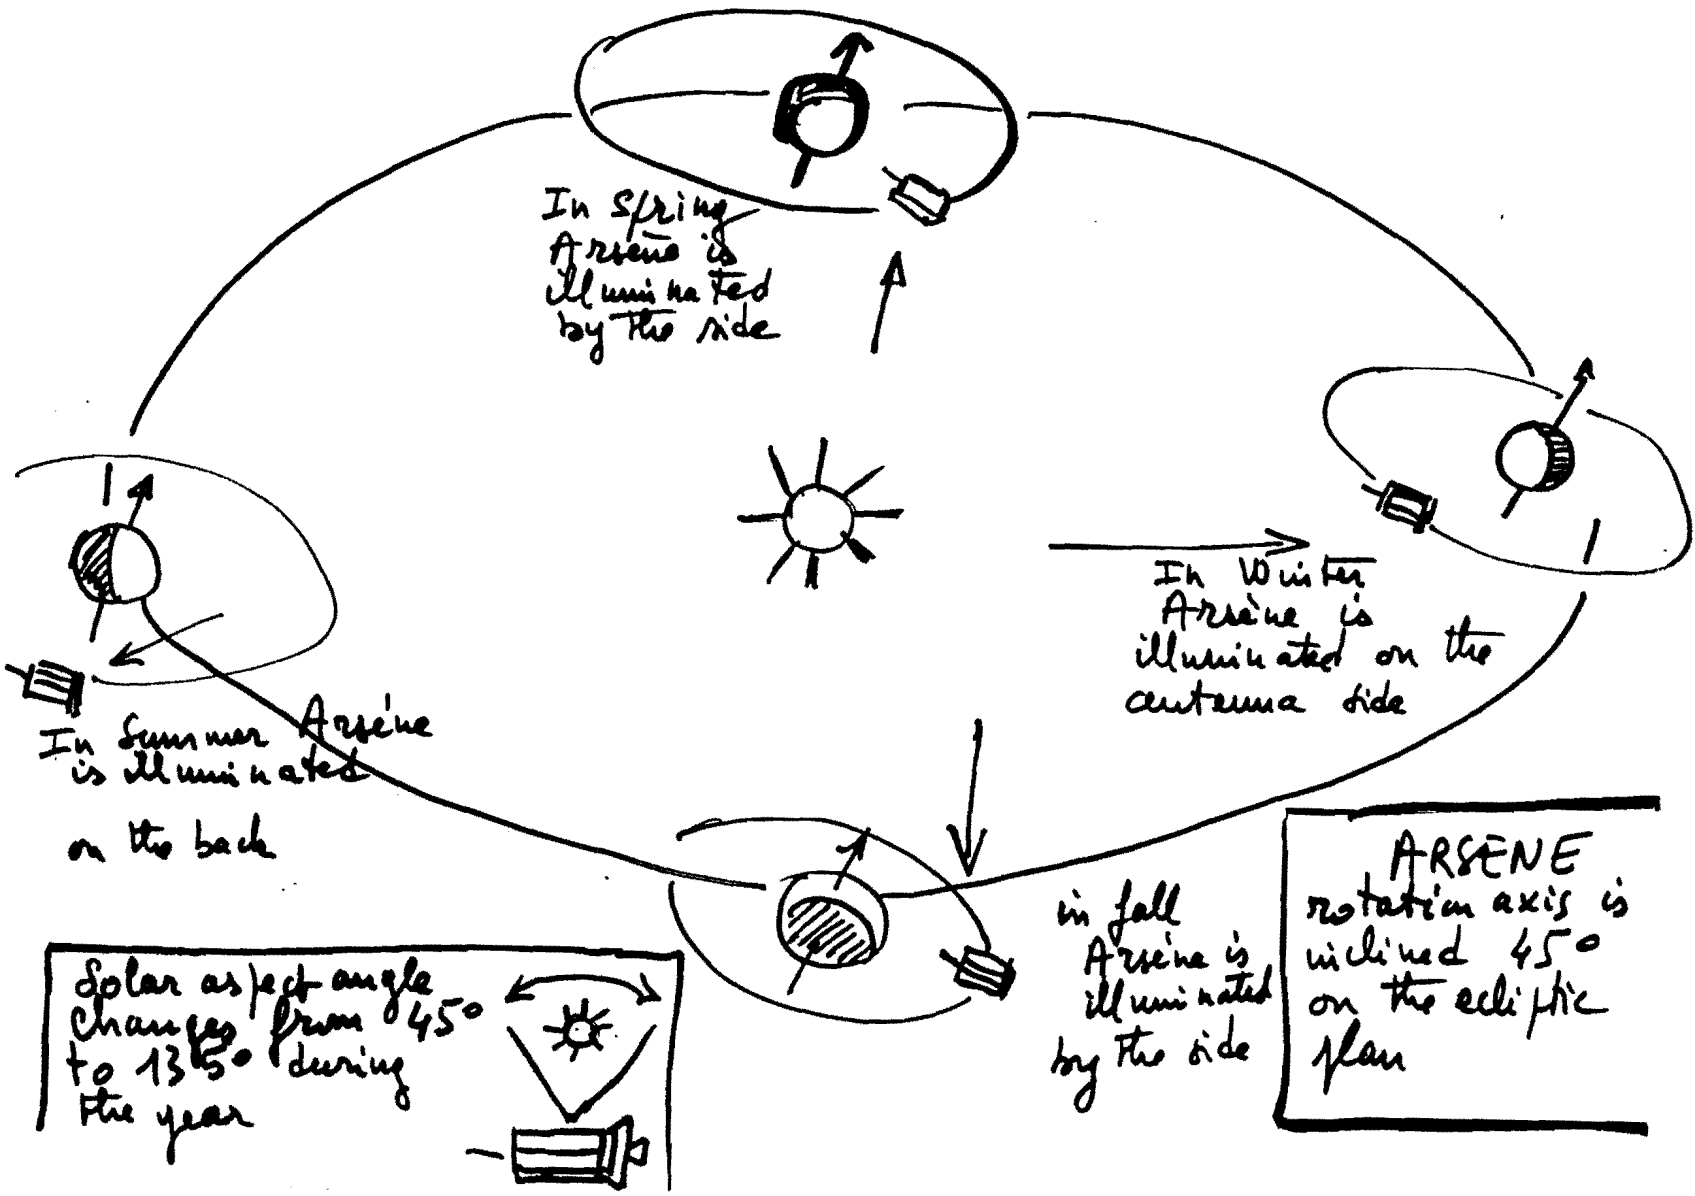 In Spring
Arsène is
illuminated
by the side
In Winter
Arsène is
illuminated on the
antenna side
In Summer Arséne
is illuminated
on the back
in fall
Arséne is
illuminated
by the side
ARSENE
rotation axis is
inclined 45°
on the ecliptic
plan
Solar aspect angle
changes from 45°
to 135° during
the year